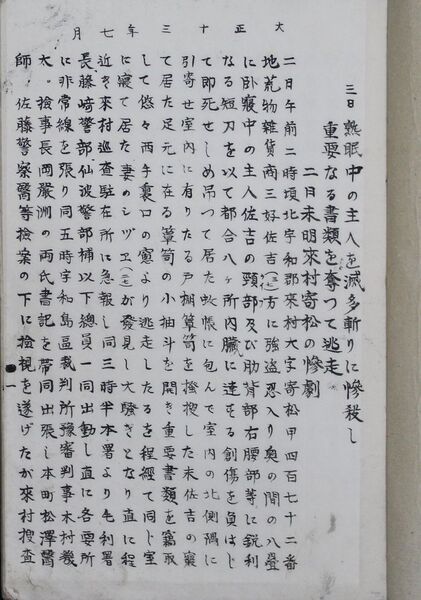 大正十三年七月
三日 熟眠中の主人を滅多斬りに惨殺し
重要なる書類を奪つて逃走
二日未明來村寄松の惨劇
二日午前二時頃北宇和郡來村大字寄松甲四百七十二番
地荒物雜貨商三好佐吉 方に強盗忍入り奥の間の八疊
に臥寢中の主人佐吉の頸部及び肋背部右腰部等に鋭利
なる短刀を以て都合八ヶ所内臓に達する創傷を負はし
て即死せしめ吊つて居た蚊帳に包んで室内の北側隅に
引寄せ室内に有りたる戸棚簞笥を捜 した末佐吉の寢
て居た足元に在る簞笥の小抽斗を開き重要書類を竊取
して悠々西手裏口の窓より逃走したるを程經て同じ室
に寢て居た妻のシヅヱ が發見し大騒ぎとなり直に程
近き來村巡査駐在所に急報し同三時半本署より毛利署
長藤﨑警部仙波警部補以下總員一同出動し直に各要所
に非常線を張り同五時宇和島區裁判所豫審判事木村幾
太。檢事長岡嚴洲の両氏書記を帶同出張し本町松澤醫
師。佐藤警察醫等檢案の下に檢視を遂げたが來村捜査
一